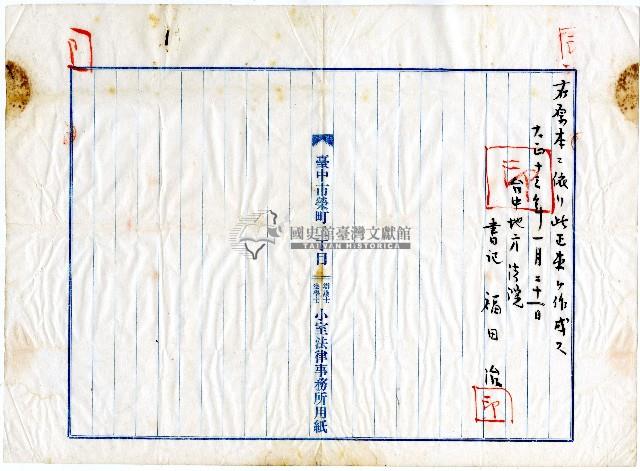 右原本ニ依リ此正本ヲ作成ス
大正十三年十一月二十一日
台中地方法院
書記 福田 治
印
印
臺中市榮町二丁目
辯護士
法學士
小室法律事務所用紙
國史館臺灣文獻館
TAIWAN HISTORICA